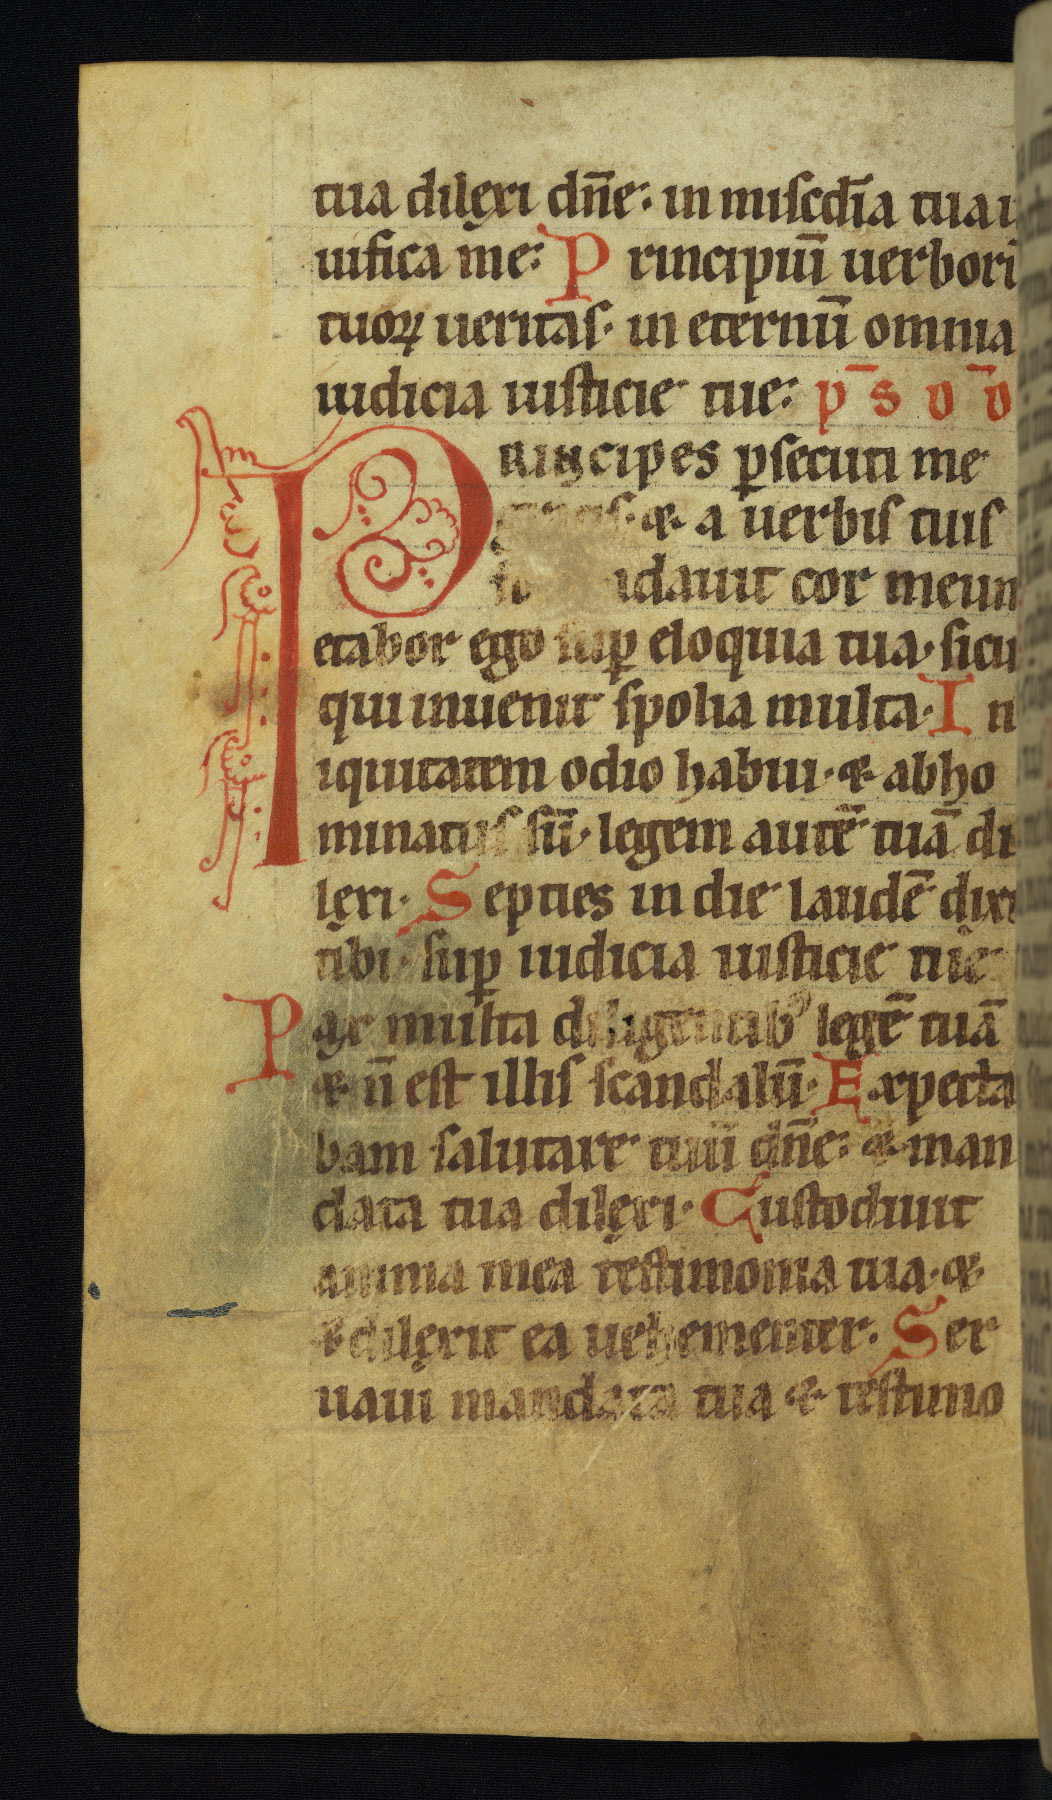 tua dilęxi dn̄e: in miscdīa tua ui
uifica me: Principiū uerborū
tuoꝝ ueritas· in eternū omnia
iudicia iusticie tue: p̄ s d d̄
Principes ꝑsecuti me
gratis· & a uerbis tuis
idauit cor meum
etabor ego suꝑ eloquia tua· sicut
qui inuenit spolia multa· In
iquitatem odio habui· & abho
minatus sū· legem autē tuā di
lęxi· Septies in die laudē dixi
tibi· suꝑ iudicia iusticie tue
Pax multa diligentibꝰ legē tuā
& n̄ est illis scandalū· Expecta
bam salutare tuū dn̄e: & man
data tua dilęxi· Custodiuit
anima mea testimonia tua· &
& dilęxit ea uehementer. Ser
uaui mandata tua & testimo